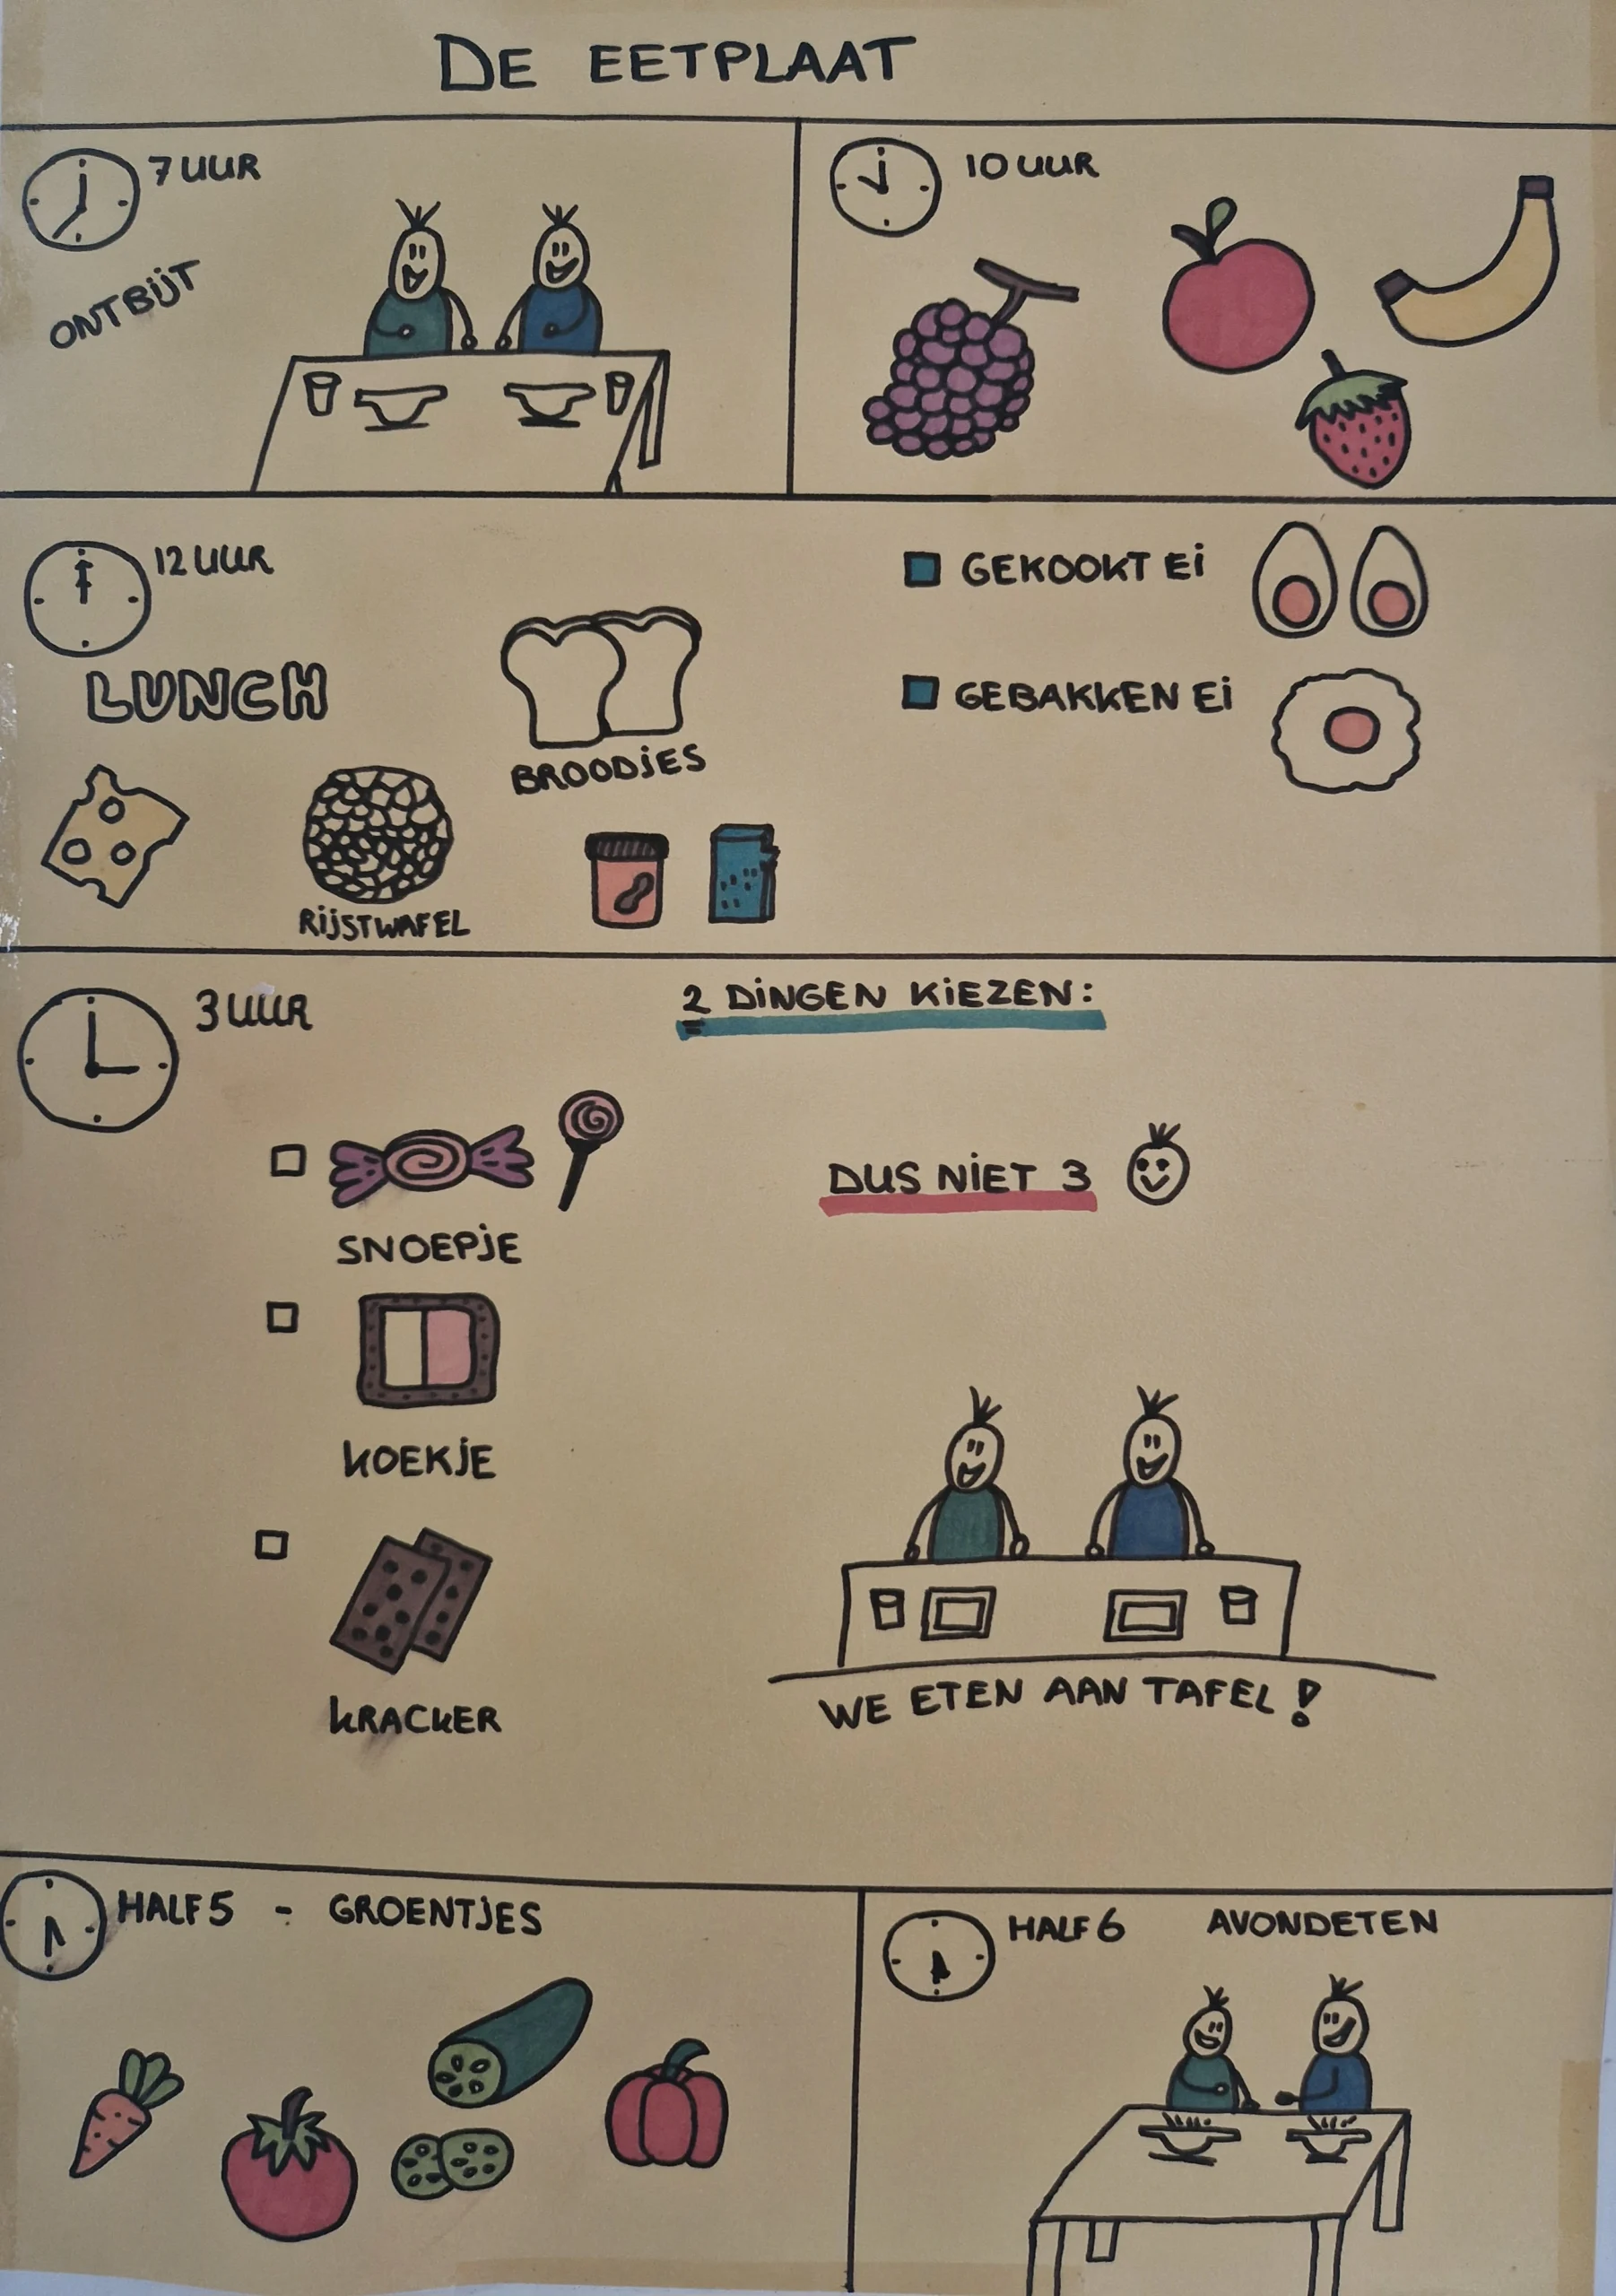 DE EETPLAAT
7 UUR
ONTBIJT
10 UUR
12 UUR
LUNCH
BROODJES
RIJSTWAFEL
GEKOOKT EI
GEBAKKEN EI
3 UUR
2 DINGEN KIEZEN:
SNOEPJE
DUS NIET 3
KOEKJE
KRACKER
WE ETEN AAN TAFEL!
HALF 5 - GROENTJES
HALF 6 AVONDETEN